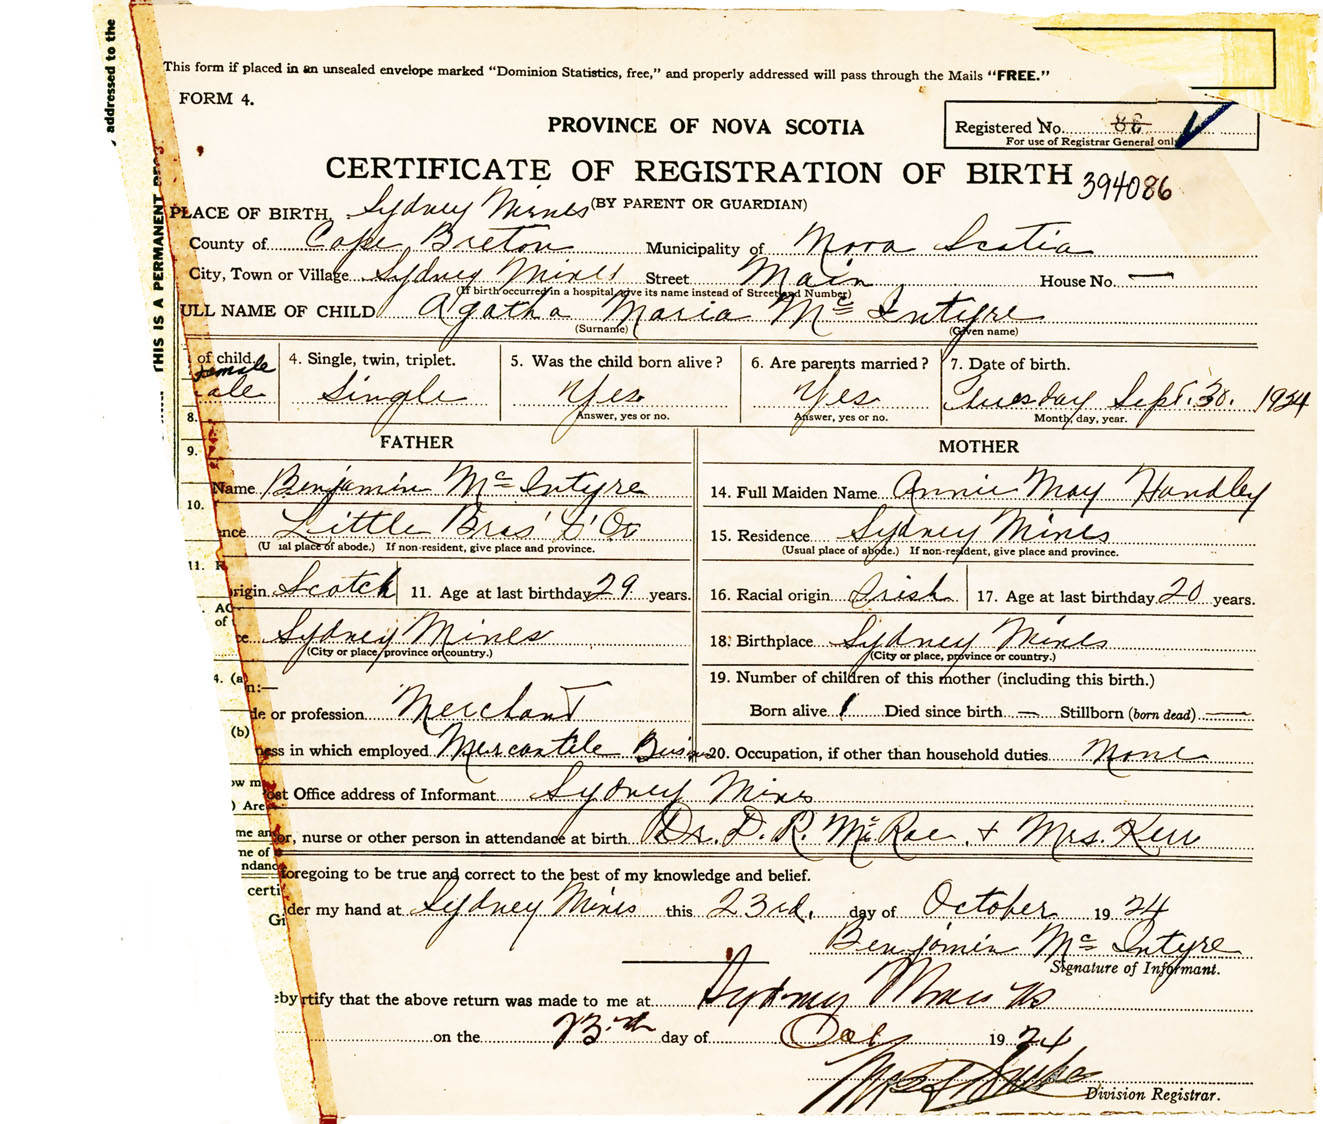 addressed to the
THIS IS A PERMANENT
This form if placed in an unsealed envelope marked "Dominion Statistics, free," and properly addressed will pass through the Mails "FREE."
FORM 4.
PROVINCE OF NOVA SCOTIA
Registered No. 88
For use of Registrar General only
CERTIFICATE OF REGISTRATION OF BIRTH 394086
(BY PARENT OR GUARDIAN)
PLACE OF BIRTH, Sydney Mines
County of Cape Breton Municipality of Nova Scotia
City, Town or Village Sydney Mines Street Main House No. —
(If birth occurred in a hospital, give its name instead of Street and Number)
ULL NAME OF CHILD Agatha Maria Mc Intyre
(Surname) (Given name)
of child. 4. Single, twin, triplet. 5. Was the child born alive? 6. Are parents married? 7. Date of birth.
Female
ale Single Yes Yes Tuesday Sept. 30. 1924
Answer, yes or no. Answer, yes or no. Month, day, year.
8.
FATHER MOTHER
9.
Name Benjamin Mc Intyre 14. Full Maiden Name Annie May Handley
10.
nce Little Bras' D'Or 15. Residence Sydney Mines
(U ual place of abode.) If non-resident, give place and province. (Usual place of abode.) If non-resident, give place and province.
11. R
rigin Scotch 11. Age at last birthday 29 years. 16. Racial origin Irish 17. Age at last birthday 20 years.
AC
of
ce Sydney Mines 18. Birthplace Sydney Mines
(City or place, province or country.) (City or place, province or country.)
4. (a)
n:— 19. Number of children of this mother (including this birth.)
de or profession Merchant Born alive 1 Died since birth — Stillborn (born dead) —
(b)
ness in which employed Mercantile Busi 20. Occupation, if other than household duties None
ow m
ost Office address of Informant Sydney Mines
) Are
me an
or, nurse or other person in attendance at birth Dr. D. R. McRae. + Mrs. Kerr
me of
ndanc
foregoing to be true and correct to the best of my knowledge and belief.
certi
der my hand at Sydney Mines this 23rd, day of October 1924
Gi
Benjamin Mc Intyre
Signature of Informant.
eby rtify that the above return was made to me at Sydney Mines NS
on the 23rd day of Oct 1924
Division Registrar.